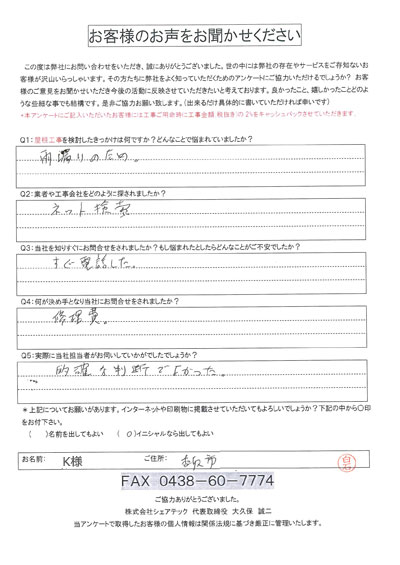 お客様のお声をお聞かせください
この度は弊社にお問い合わせをいただき、誠にありがとうございます。世の中には弊社の存在やサービスをご存知ないお
客様が沢山いらっしゃいます。その方たちに弊社をよく知っていただくためのアンケートにご協力いただけるでしょうか？ お客
様のご意見をお聞かせいただき今後の活動に反映させていただきたいと考えております。良かったこと、嬉しかったことどのよ
うな些細な事でも結構です。是非ご協力お願い致します。（出来るだけ具体的に書いていただければ幸いです）
*本アンケートにご記入いただいたお客様には工事ご用命時に工事金額（税抜き）の2%をキャッシュバックさせていただきます。
Q1：屋根工事を検討したきっかけは何ですか？どんなことで悩まれていましたか？
雨漏りのため。
Q2：業者や工事会社をどのように探されましたか？
ネット検索
Q3：当社を知りすぐにお問合せをされましたか？もし悩まれたとしたらどんなことがご不安でしたか？
すぐ電話した。
Q4：何が決め手となり当社にお問合せをされましたか？
修理費。
Q5：実際に当社担当者がお伺いしていかがでしたでしょうか？
的確な判断でよかった。
＊上記についてお願いがあります。インターネットや印刷物に掲載させていただいてもよろしいでしょうか？下記の中から〇印
をお付下さい。
（　）名前を出してもよい　（〇）イニシャルなら出してもよい
お名前： K様 ご住所： 香取市
FAX 0438-60-7774
ご協力ありがとうございました。
株式会社シェアテック 代表取締役 大久保 誠二
当アンケートで取得したお客様の個人情報は関係法規に基づき厳正に管理いたします。